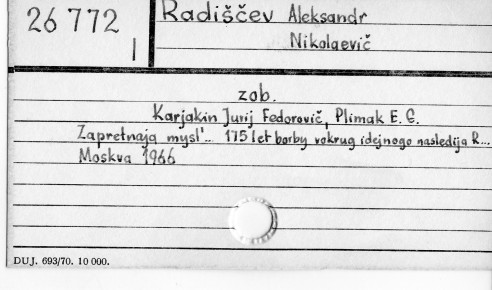 26 772 Radiščev Aleksandr
I Nikolaevič
zob.
Karjakin Jurij Fedorovič, Plimak E. G.
Zapretnaja mysl'... 175 let borby vokrug idejnogo nasledija R...
Moskva 1966
DUJ. 693/70. 10 000.